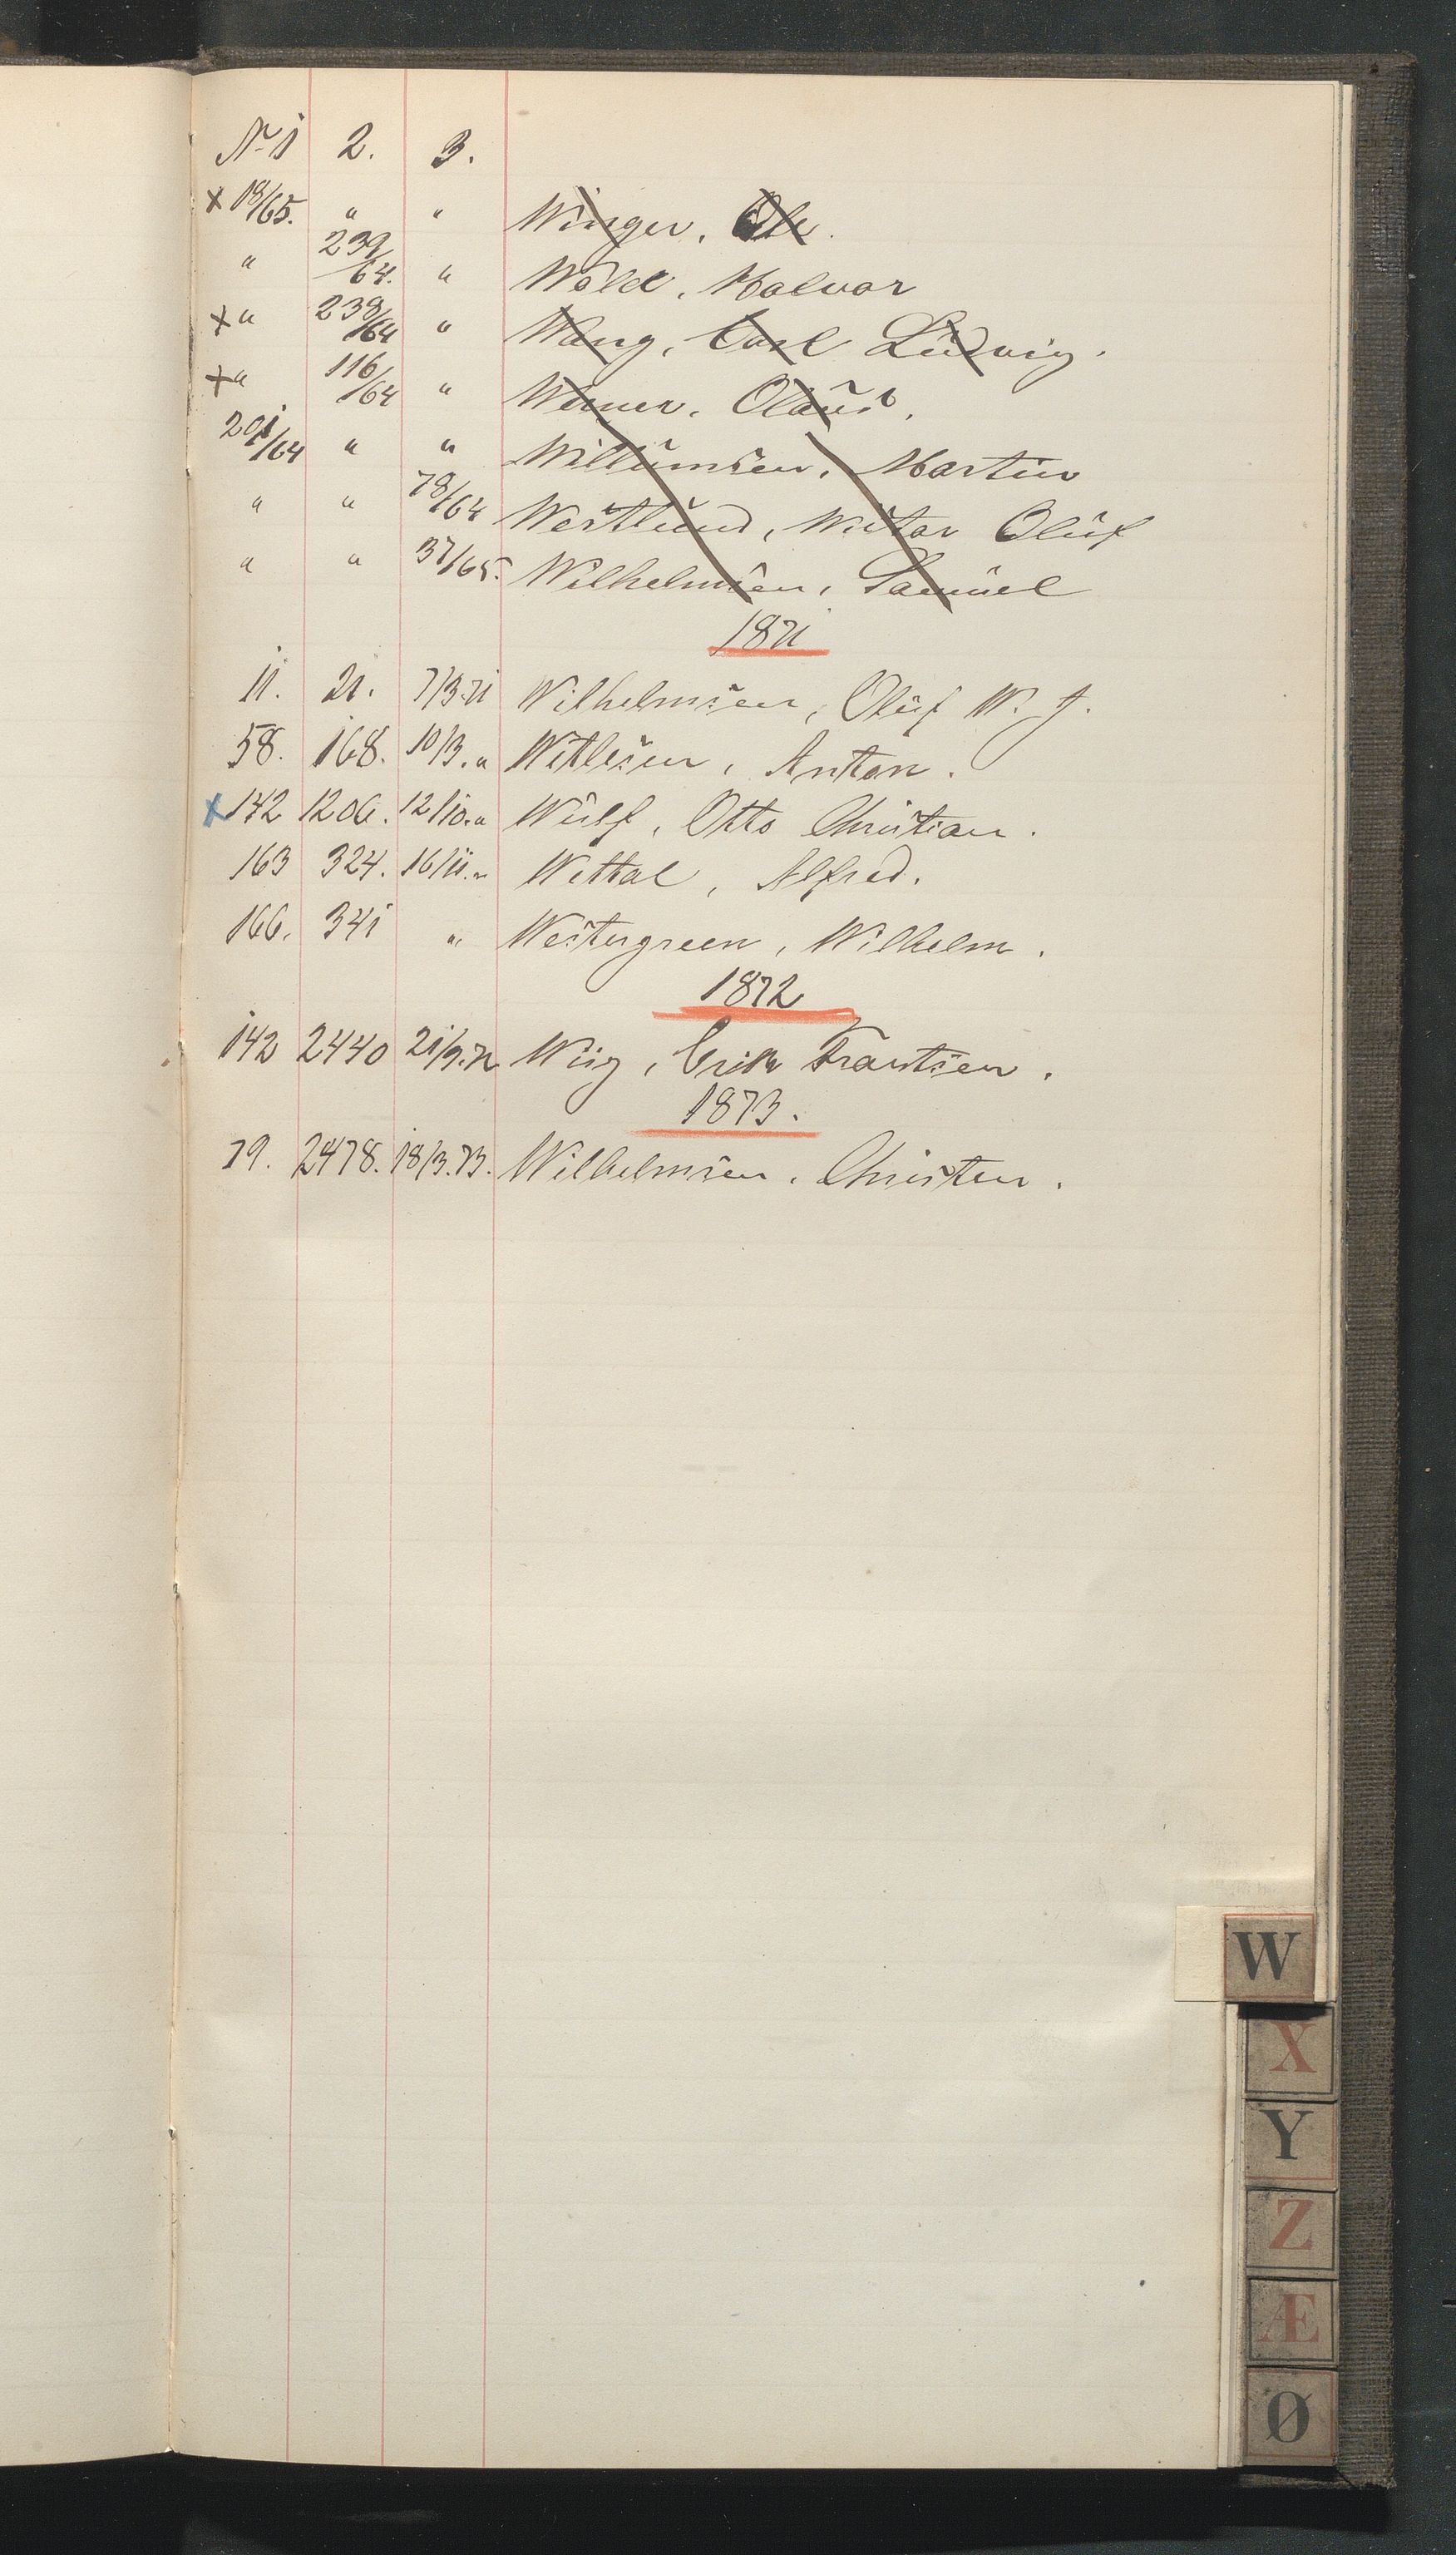 No 1 2. 3.
x 18/65. " " Winger, Ole.
" 239/64. " Wold, Halvor
x " 238/64 " Wang, Carl Ludvig.
x " 116/64 " Werner, Olaus.
201/64 " " Willumsen, Martin
" " 78/64 Westlund, Victor Oluf
" " 37/65. Wilhelmsen, Samuel
1871
11. 21. 7/3.71 Wilhelmsen, Oluf W. J.
58. 168. 10/3. " Witlesen, Anton.
x 142 1206. 12/10. " Wulf, Otto Christian.
163 324. 16/11. " Wettal, Alfred.
166. 341 " Westergreen, Wilhelm.
1872
142 2440 21/9.72 Wiig, Erik Frantsen.
1873.
79. 2478. 18/3.73. Wilhelmsen, Christen.
W
X
Y
Z
Æ
Ø